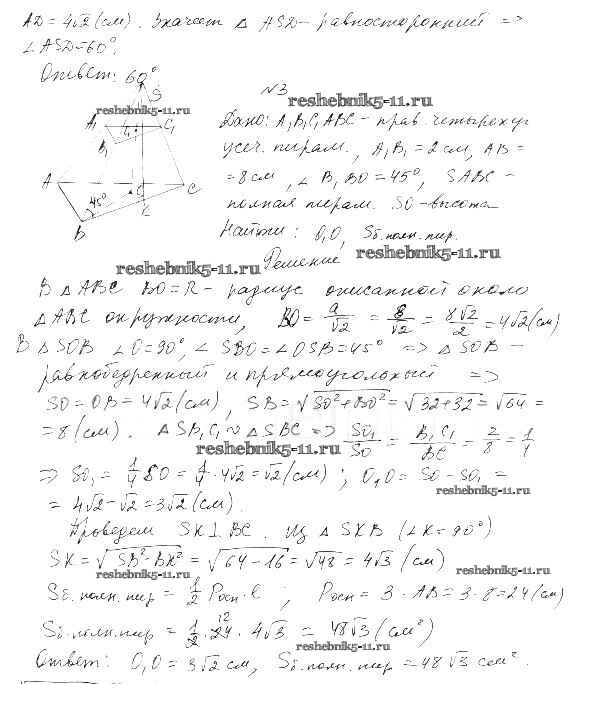 AD = 4√2 (см). Значит △ ASD – равносторонний =>
∠ASD = 60°.
Ответ: 60°.
№3
S
reshebnik5-11.ru
reshebnik5-11.ru
A₁ C₁
B₁
A C
K
45°
B
Дано: A₁B₁C₁ABC – прав. четырехуг
усеч. пирам., A₁B₁ = 2 см, AB =
= 8 см, ∠ B₁BO = 45°, SABC –
полная пирам. SO – высота
Найти: O₁O, Sб.полн.пир.
reshebnik5-11.ru
reshebnik5-11.ru
Решение
В △ ABC BO = R – радиус описанной около
△ABC окружности, BO = a/√2 = 8/√2 = 8√2/2 = 4√2 (см)
В △ SOB ∠O = 90°, ∠ SBO = ∠OSB = 45° => △ SOB –
равнобедренный и прямоугольный =>
SO = OB = 4√2 (см), SB = √SO² + BO² = √32+32 = √64 =
= 8 (см). △ SB₁C₁ ~ △ SBC => SO₁/SO = B₁C₁/BC = 2/8 = 1/4
reshebnik5-11.ru
=> SO₁ = 1/4 SO = 1/4 · 4√2 = √2 (см); O₁O = SO – SO₁ =
reshebnik5-11.ru
= 4√2 – √2 = 3√2 (см).
Проведем SK ⊥ BC. Из △ SKB (∠K = 90°)
SK = √SB² – BK² = √64 – 16 = √48 = 4√3 (см)
reshebnik5-11.ru
reshebnik5-11.ru
Sб.полн.пир = 1/2 Pосн · l ; Pосн = 3 · AB = 3·8 = 24 (см)
Sб.полн.пир = 1/2 · 24 12 · 4√3 = 48√3 (см²)
reshebnik5-11.ru
Ответ: O₁O = 3√2 см, Sб.полн.пир = 48√3 см².